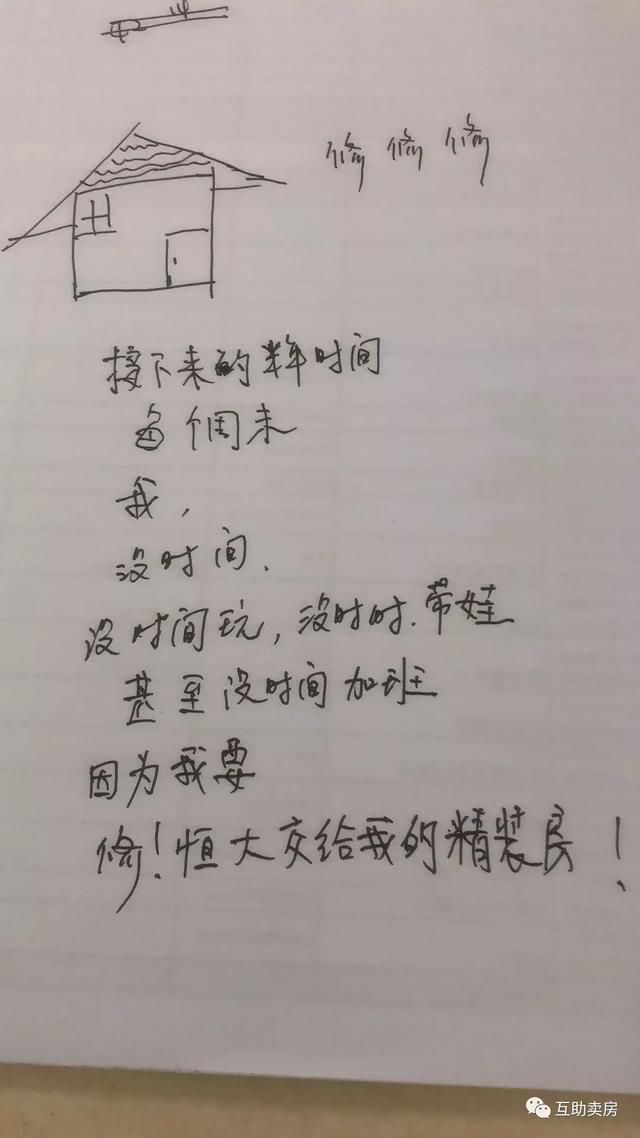 修 修 修
接下来的半年时间
每个周末
我,
没时间.
没时间玩,没时时.带娃
甚至没时间加班
因为我要
修!恒大交给我的精装房!
互助卖房